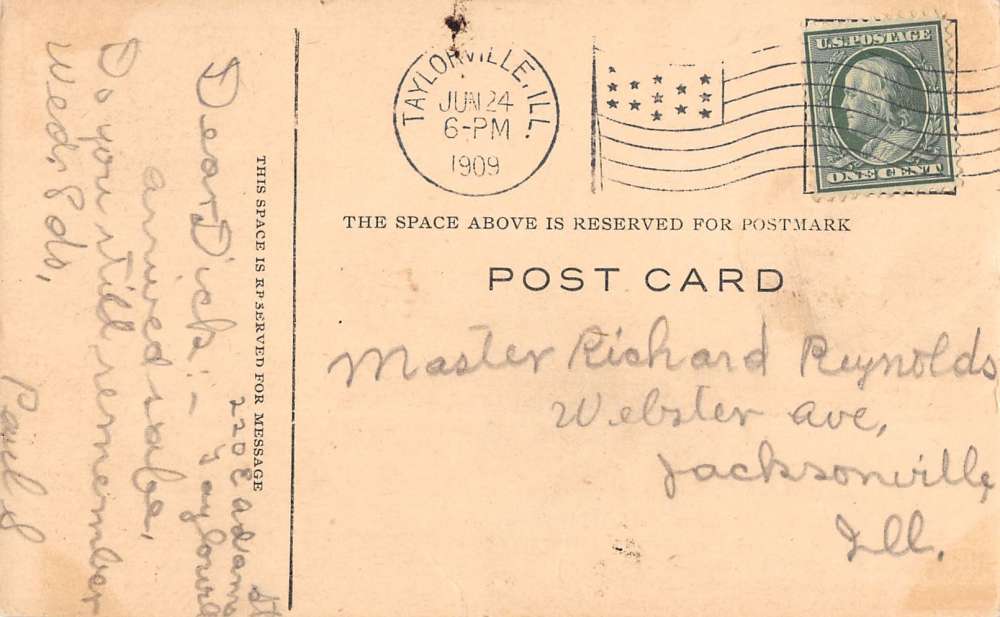 TAYLORVILLE, ILL.
JUN 24
6-PM
1909
U.S. POSTAGE
ONE CENT
THE SPACE ABOVE IS RESERVED FOR POSTMARK
POST CARD
THIS SPACE IS RESERVED FOR MESSAGE
220 E Adams St
Taylorville
Dear Dick:-
arrived safe,
Do you still remember
Wed, 8 do,
Paul S
Master Richard Reynolds
Webster Ave,
Jacksonville,
Ill.